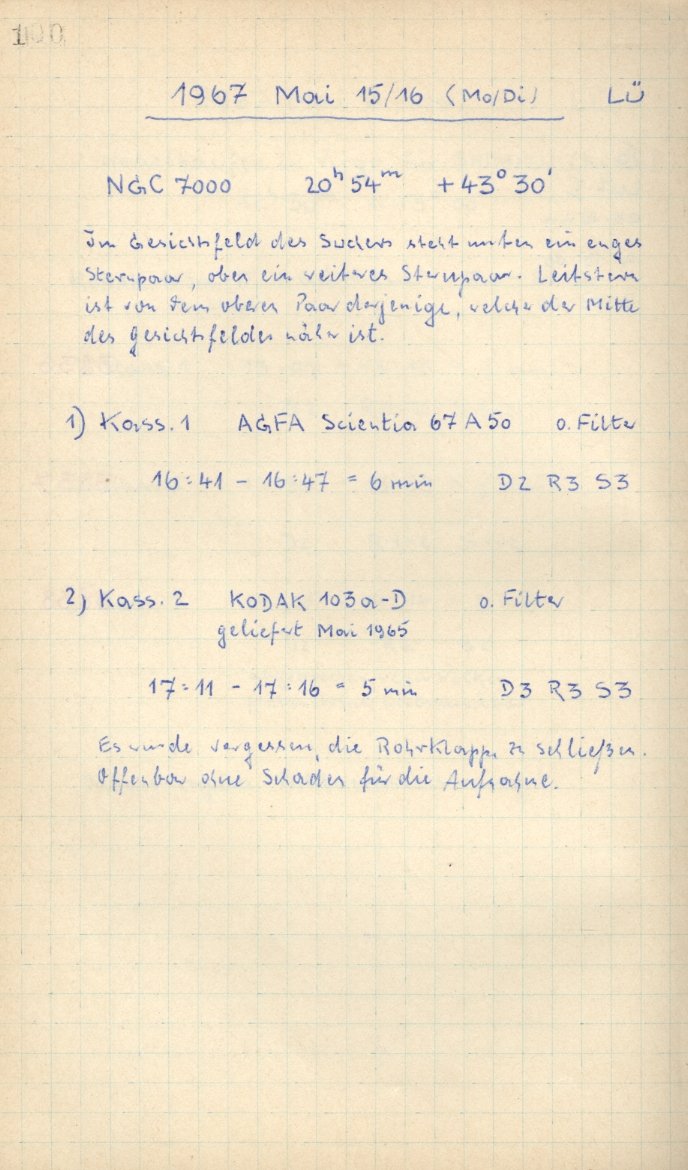 100
1967 Mai 15/16 (Mo/Di) LÜ
NGC 7000 20ʰ 54ᵐ +43° 30'
Im Gesichtsfeld des Suchers steht unten ein enges
Sternpaar, oben ein weiteres Sternpaar. Leitstern
ist von dem oberen Paar derjenige, welcher der Mitte
des Gesichtsfeldes näher ist.
1) Kass. 1 AGFA Scientia 67 A 50 o. Filter
16:41 - 16:47 = 6 min D2 R3 S3
2) Kass. 2 KODAK 103a-D o. Filter
geliefert Mai 1965
17:11 - 17:16 = 5 min D3 R3 S3
Es wurde vergessen, die Rohrklappe zu schließen.
Offenbar ohne Schaden für die Aufnahme.